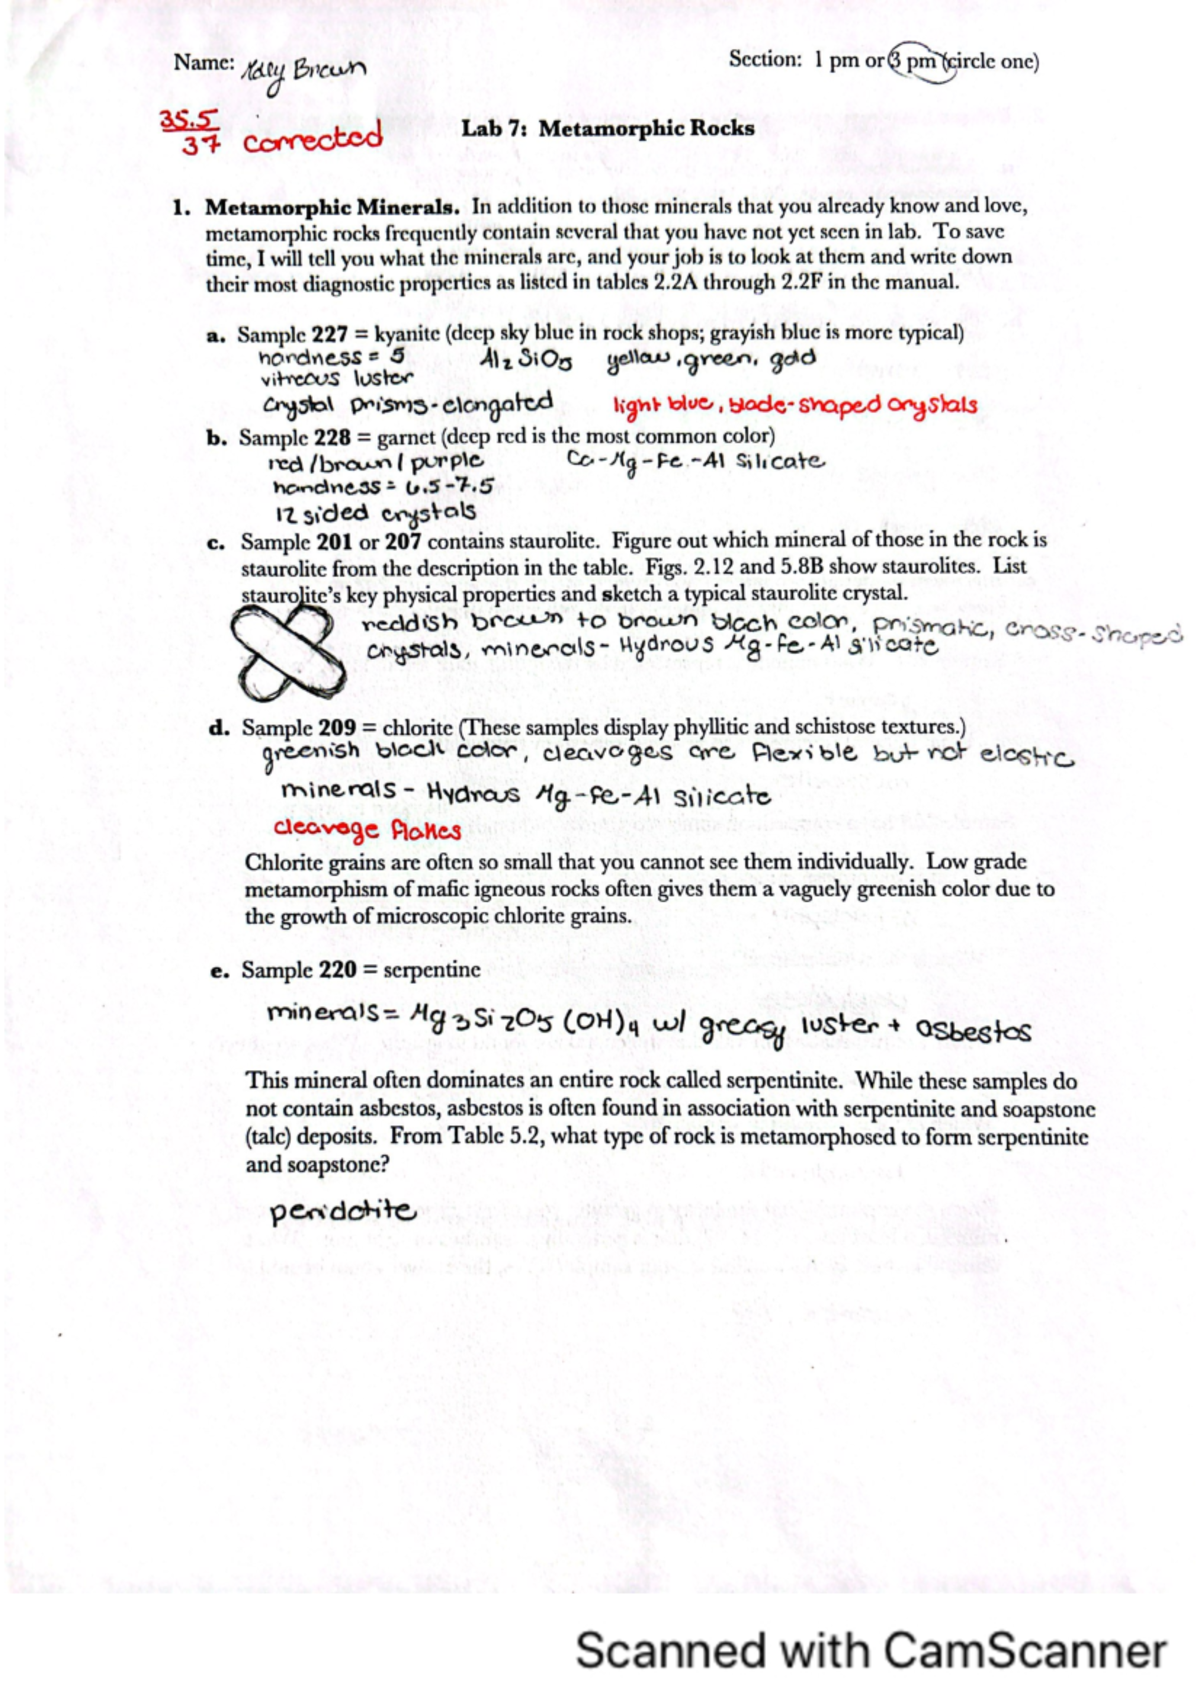 Name: Mary Brown Section: 1 pm or 3 pm (circle one)
35.5
37 corrected
Lab 7: Metamorphic Rocks
1. Metamorphic Minerals. In addition to those minerals that you already know and love,
metamorphic rocks frequently contain several that you have not yet seen in lab. To save
time, I will tell you what the minerals are, and your job is to look at them and write down
their most diagnostic properties as listed in tables 2.2A through 2.2F in the manual.
a. Sample 227 = kyanite (deep sky blue in rock shops; grayish blue is more typical)
hardness = 5 Al2SiO5 yellow, green, gold
vitreous luster
crystal prisms - elongated light blue, blade-shaped crystals
b. Sample 228 = garnet (deep red is the most common color)
red / brown / purple Ca-Mg-Fe-Al silicate
hardness = 6.5-7.5
12 sided crystals
c. Sample 201 or 207 contains staurolite. Figure out which mineral of those in the rock is
staurolite from the description in the table. Figs. 2.12 and 5.8B show staurolites. List
staurolite's key physical properties and sketch a typical staurolite crystal.
reddish brown to brown black color, prismatic, cross-shaped
crystals, minerals - Hydrous Mg-Fe-Al silicate
d. Sample 209 = chlorite (These samples display phyllitic and schistose textures.)
greenish black color, cleavages are flexible but not elastic
minerals - Hydrous Mg-Fe-Al silicate
cleavage flakes
Chlorite grains are often so small that you cannot see them individually. Low grade
metamorphism of mafic igneous rocks often gives them a vaguely greenish color due to
the growth of microscopic chlorite grains.
e. Sample 220 = serpentine
minerals = Mg3Si2O5(OH)4 w/ greasy luster + asbestos
This mineral often dominates an entire rock called serpentinite. While these samples do
not contain asbestos, asbestos is often found in association with serpentinite and soapstone
(talc) deposits. From Table 5.2, what type of rock is metamorphosed to form serpentinite
and soapstone?
peridotite
Scanned with CamScanner